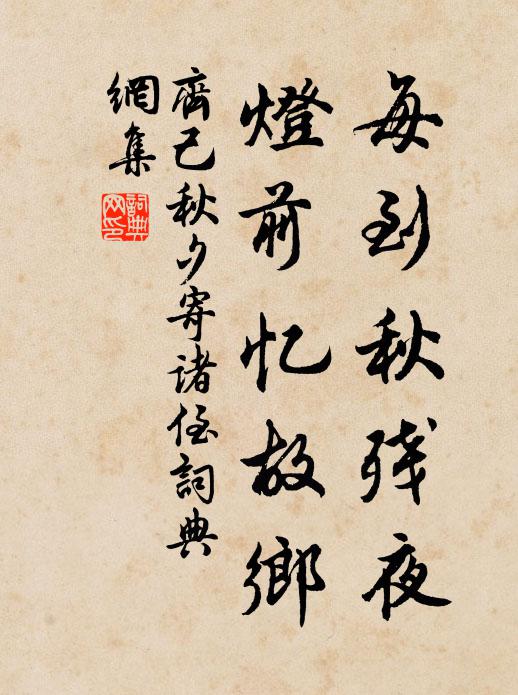 每到秋残夜
燈前忆故鄉
齊己秋夕寄诸侄詞典
網集
詞典
网印